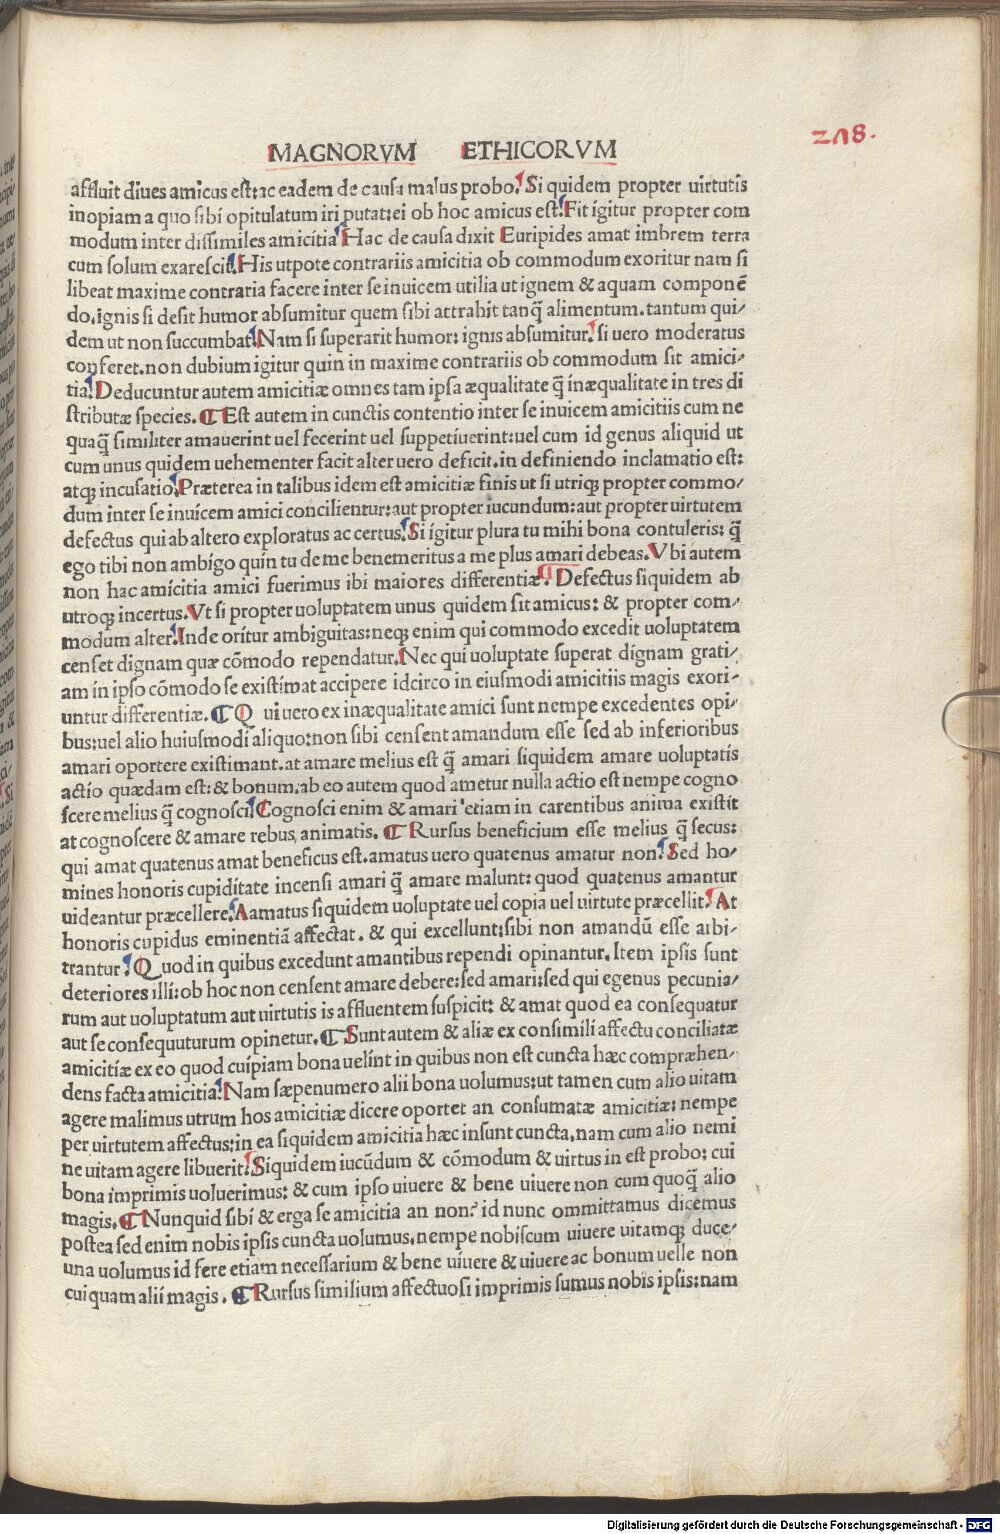 MAGNORVM ETHICORVM
208.
affluit diues amicus est:ac eadem de causa malus probo. Si quidem propter uirtutis
inopiam a quo sibi opitulatum iri putat:ei ob hoc amicus est. Fit igitur propter com
modum inter dissimiles amicitia Hac de causa dixit Euripides amat imbrem terra
cum solum exarescit. His utpote contrariis amicitia ob commodum exoritur nam si
libeat maxime contraria facere inter se inuicem utilia ut ignem & aquam componē
do.ignis si desit humor absumitur quem sibi attrahit tanq̄ alimentum.tantum qui/
dem ut non succumbat. Nam si superarit humor: ignis absumitur. si uero moderatus
conferet.non dubium igitur quin in maxime contrariis ob commodum sit amici/
tia. Deducuntur autem amicitiæ omnes tam ipsa æqualitate q̄ inæqualitate in tres di
stributæ species. ¶ Est autem in cunctis contentio inter se inuicem amicitiis cum ne
quaq̄ similiter amauerint uel fecerint uel suppetiuerint:uel cum id genus aliquid ut
cum unus quidem uehementer facit alter uero deficit.in definiendo inclamatio est:
atq; incusatio. Præterea in talibus idem est amicitiæ finis ut si utriq; propter commo/
dum inter se inuicem amici concilientur:aut propter iucundum:aut propter uirtutem
defectus qui ab altero exploratus ac certus. Si igitur plura tu mihi bona contuleris: q̄
ego tibi non ambigo quin tu de me benemeritus a me plus amari debeas. Vbi autem
non hac amicitia amici fuerimus ibi maiores differentiæ. Defectus siquidem ab
utroq; incertus. Vt si propter uoluptatem unus quidem sit amicus: & propter com/
modum alter. Inde oritur ambiguitas:neq; enim qui commodo excedit uoluptatem
censet dignam quæ cōmodo rependatur. Nec qui uoluptate superat dignam grati/
am in ipso cōmodo se existimat accipere idcirco in eiusmodi amicitiis magis exori/
untur differentiæ. ¶ Q ui uero ex inæqualitate amici sunt nempe excedentes opi/
bus:uel alio huiusmodi aliquo:non sibi censent amandum esse sed ab inferioribus
amari oportere existimant.at amare melius est q̄ amari siquidem amare uoluptatis
actio quædam est: & bonum.ab eo autem quod ametur nulla actio est nempe cogno
scere melius q̄ cognosci. Cognosci enim & amari etiam in carentibus anima existit
at cognoscere & amare rebus animatis. ¶ Rursus beneficium esse melius q̄ secus:
qui amat quatenus amat beneficus est.amatus uero quatenus amatur non. Sed ho/
mines honoris cupiditate incensi amari q̄ amare malunt: quod quatenus amantur
uideantur præcellere. Aamatus siquidem uoluptate uel copia uel uirtute præcellit. At
honoris cupidus eminentiā affectat. & qui excellunt:sibi non amandū esse arbi/
trantur. Quod in quibus excedunt amantibus rependi opinantur. Item ipsis sunt
deteriores illi:ob hoc non censent amare debere:sed amari:sed qui egenus pecunia/
rum aut uoluptatum aut uirtutis is affluentem suspicit: & amat quod ea consequatur
aut se consequuturum opinetur. ¶ Sunt autem & aliæ ex consimili affectu conciliatæ
amicitiæ ex eo quod cuipiam bona uelint in quibus non est cuncta hæc compræhen/
dens facta amicitia. Nam sæpenumero alii bona uolumus:ut tamen cum alio uitam
agere malimus utrum hos amicitiæ dicere oportet an consumatæ amicitiæ: nempe
per uirtutem affectus:in ea siquidem amicitia hæc insunt cuncta.nam cum alio nemi
ne uitam agere libuerit. Siquidem iucūdum & cōmodum & uirtus in est probo: cui
bona imprimis uoluerimus: & cum ipso uiuere & bene uiuere non cum quoq̄ alio
magis. ¶ Nunquid sibi & erga se amicitia an non? id nunc ommittamus dicemus
postea sed enim nobis ipsis cuncta uolumus.nempe nobiscum uiuere uitamq; duce/
una uolumus id fere etiam necessarium & bene uiuere & uiuere ac bonum uelle non
cuiquam alii magis. ¶ Rursus similium affectuosi imprimis sumus nobis ipsis:nam
Digitalisierung gefördert durch die Deutsche Forschungsgemeinschaft - DFG